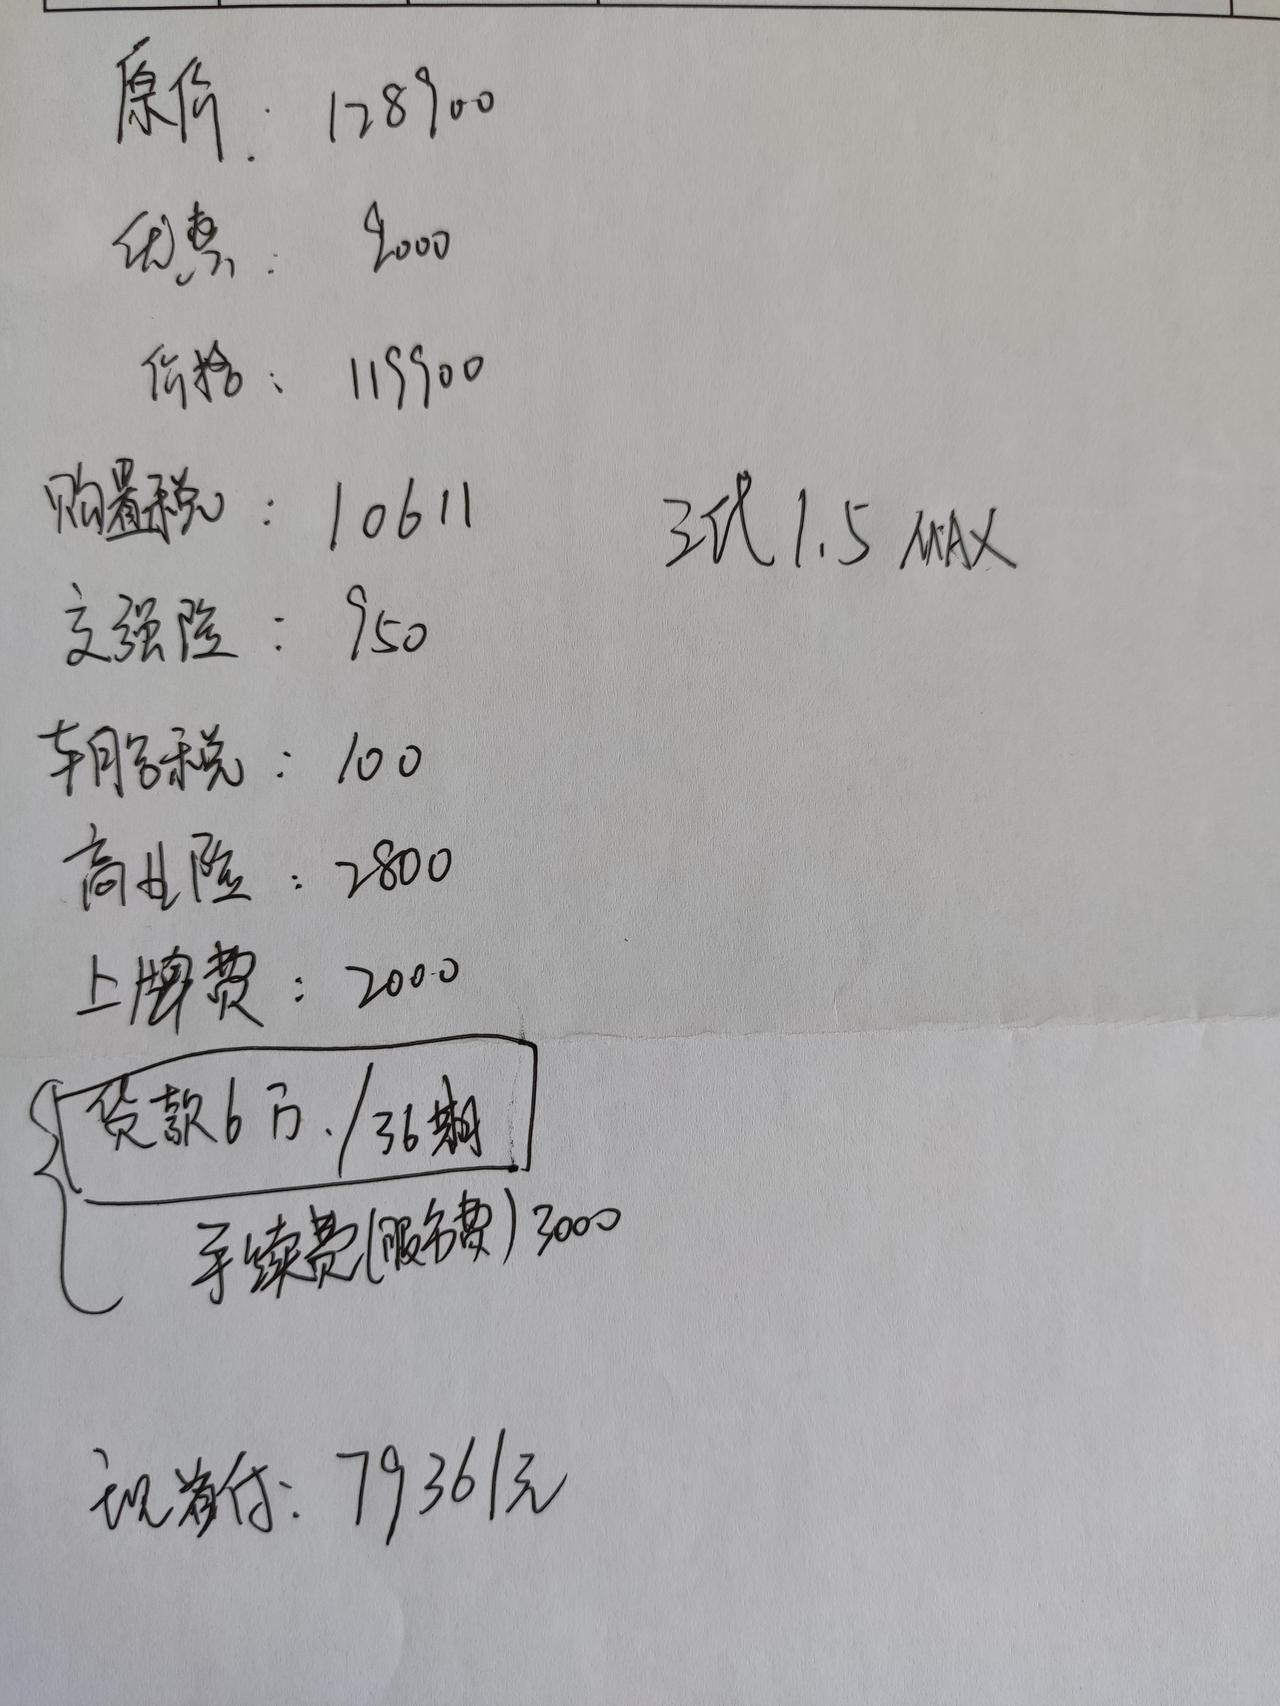 原价: 128900
优惠: 9000
价格: 119900
购置税: 10611
三代 1.5 MAX
交强险: 950
车船税: 100
商业险: 2800
上牌费: 2000
贷款6万./36期
手续费(服务费)3000
现首付: 79361元